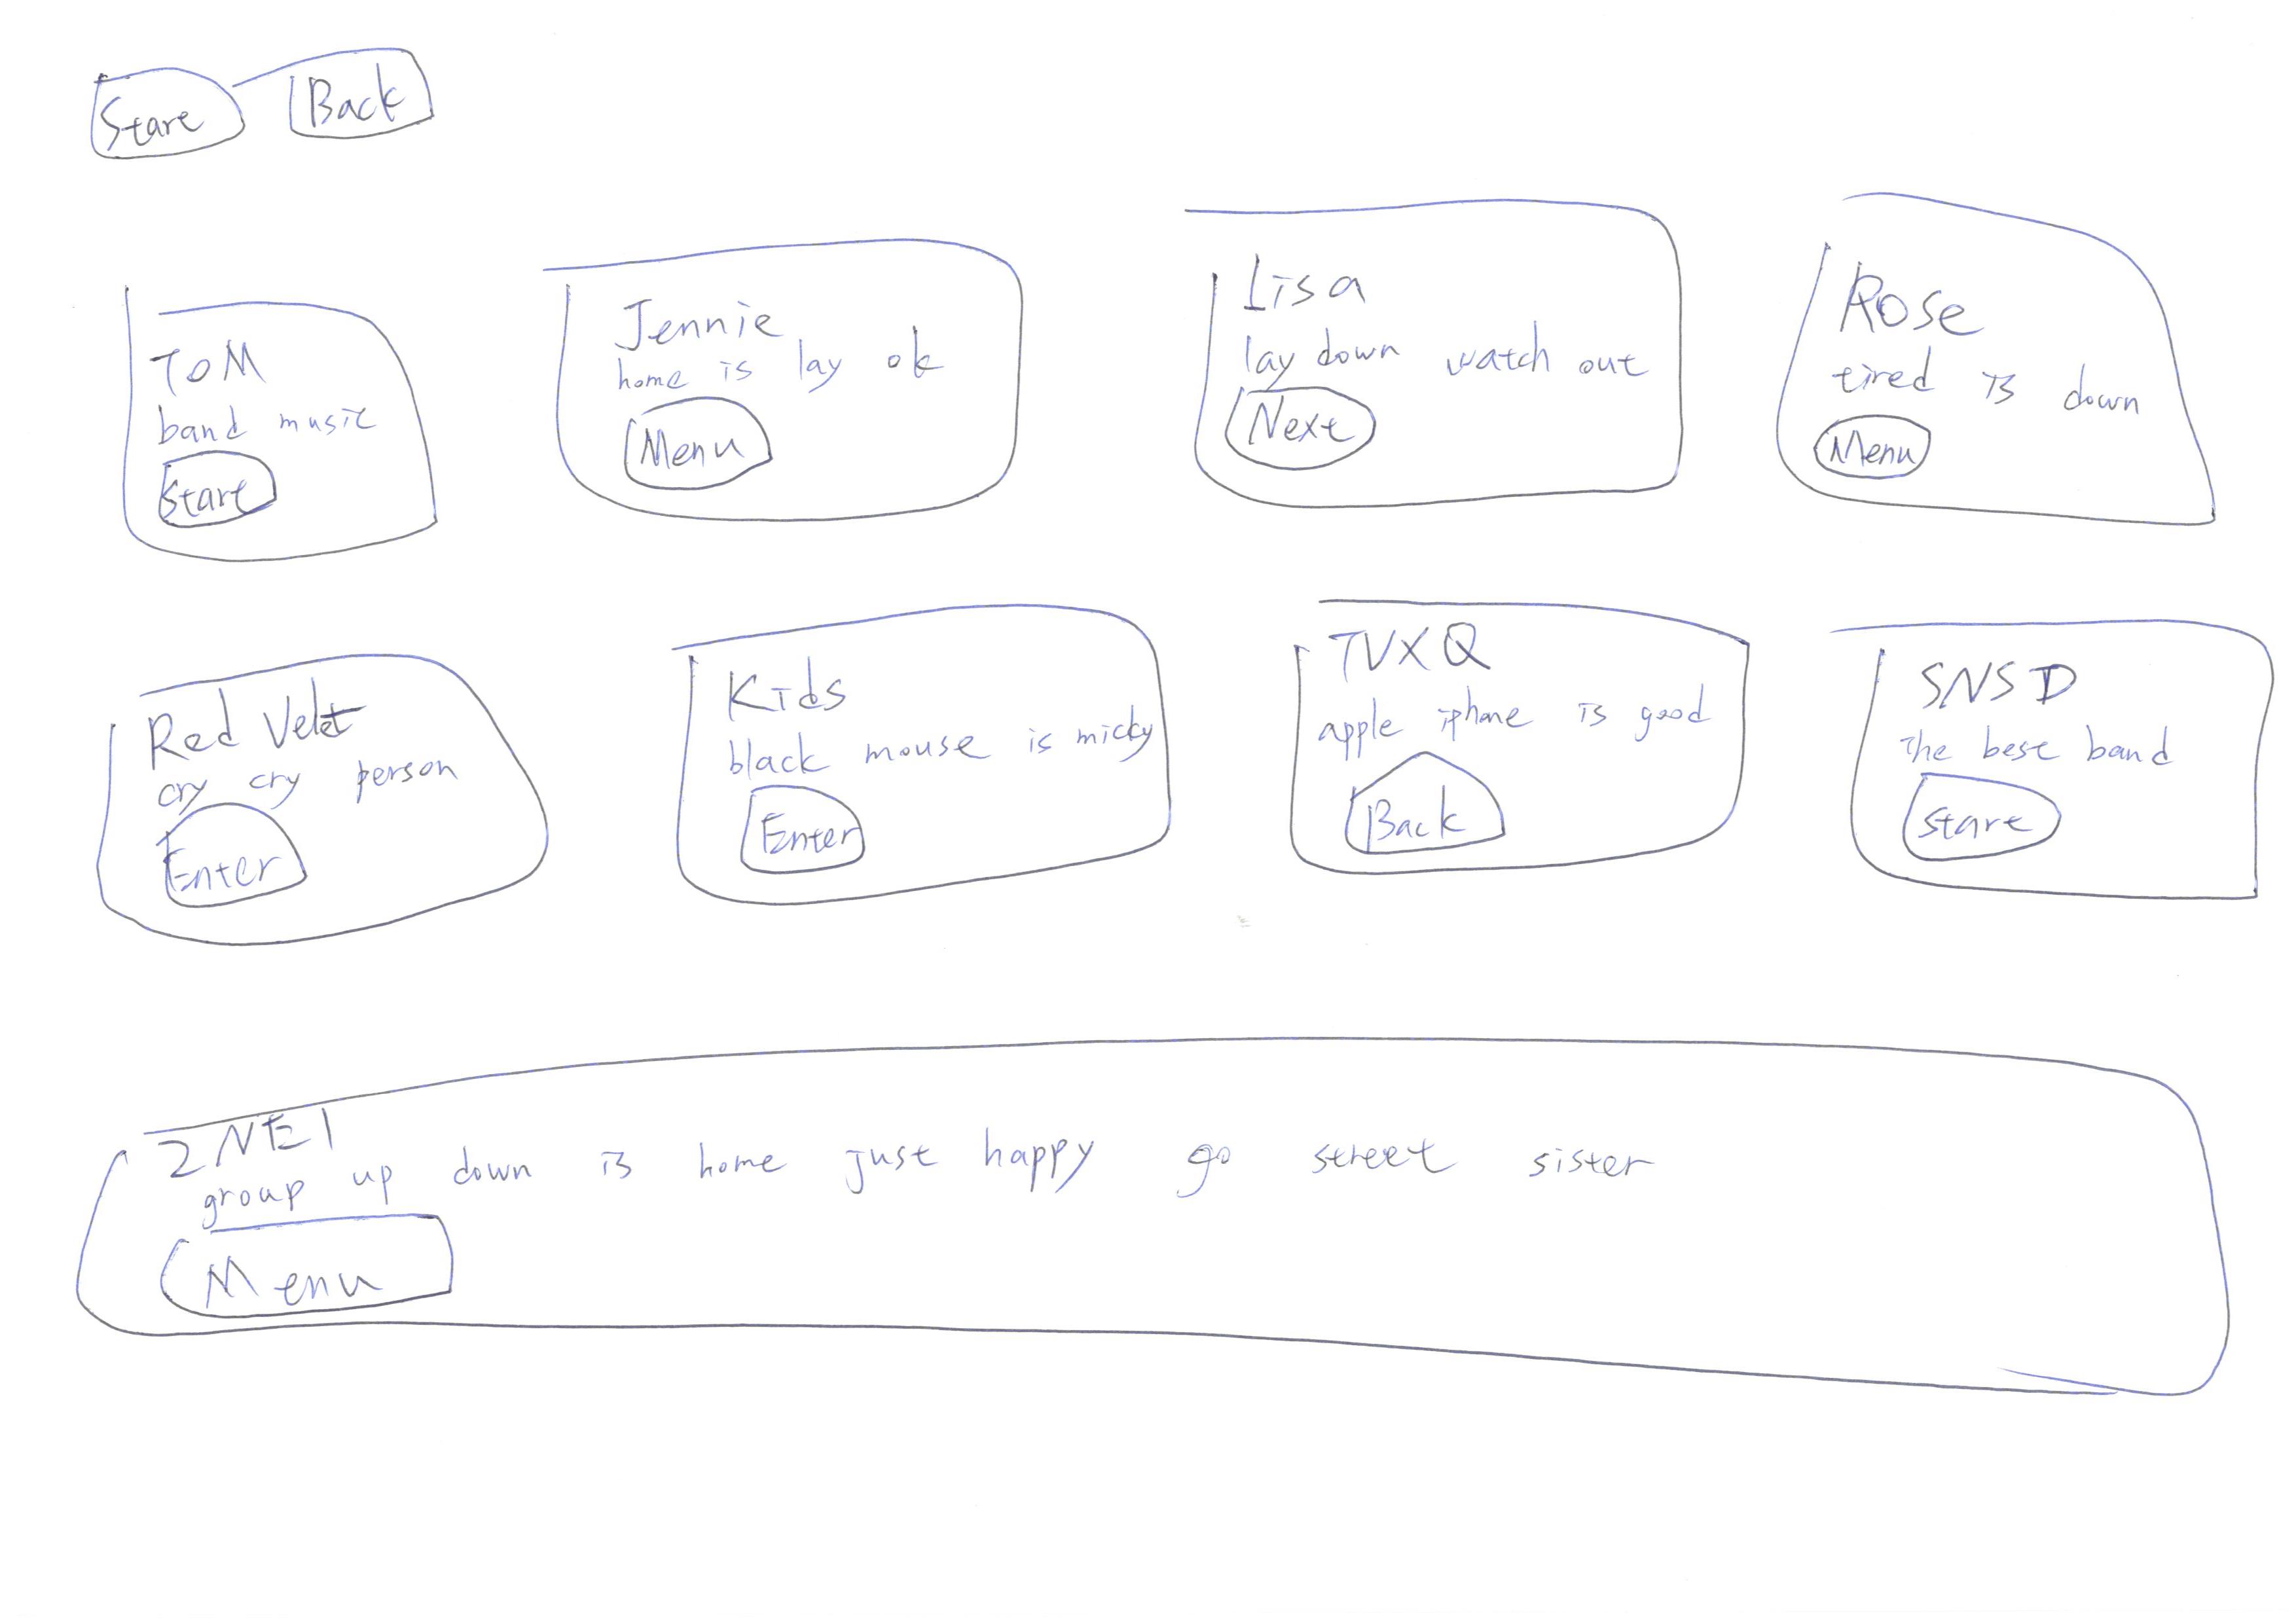 Start Back
TOM
band music
Start
Jennie
home is lay ok
Menu
Lisa
lay down watch out
Next
Rose
tired is down
Menu
Red Velet
cry cry person
Enter
Kids
black mouse is micky
Enter
TVXQ
apple iphone is good
Back
SNSD
The best band
Start
2NE1
group up down is home just happy go street sister
Menu